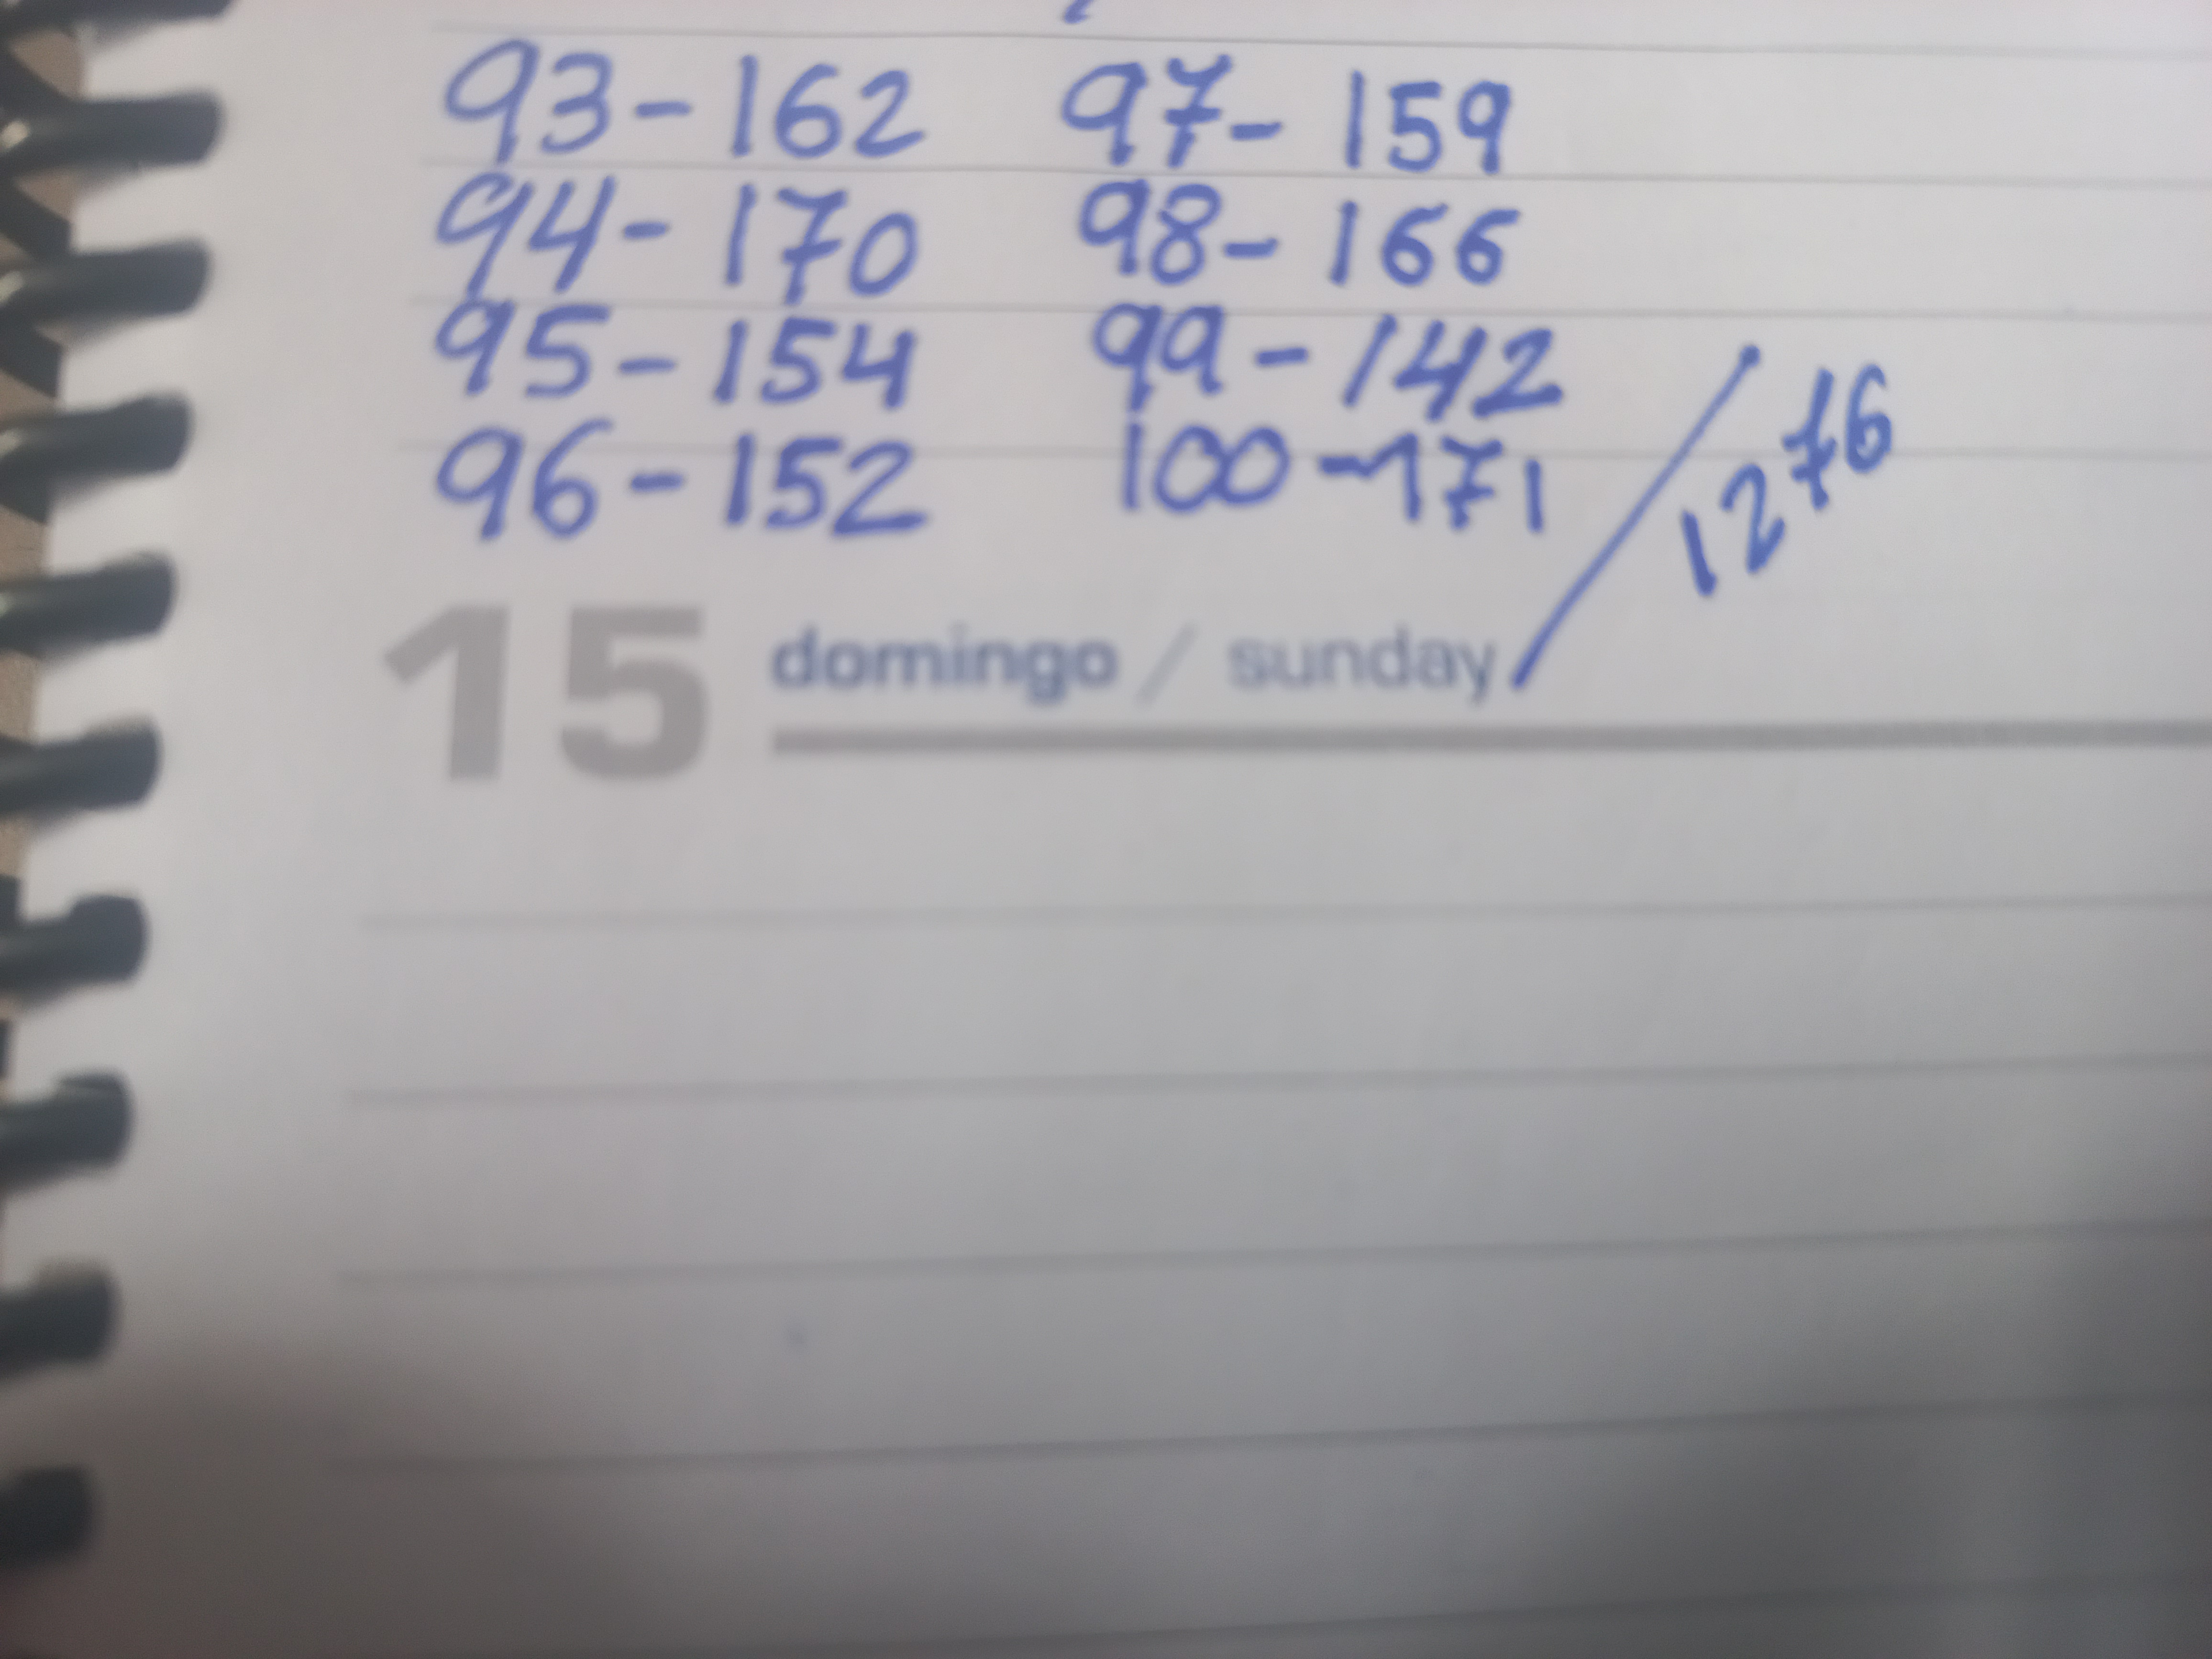 93-162 97-159
94-170 98-166
95-154 99-142
96-152 100-171
1276
15 domingo / sunday